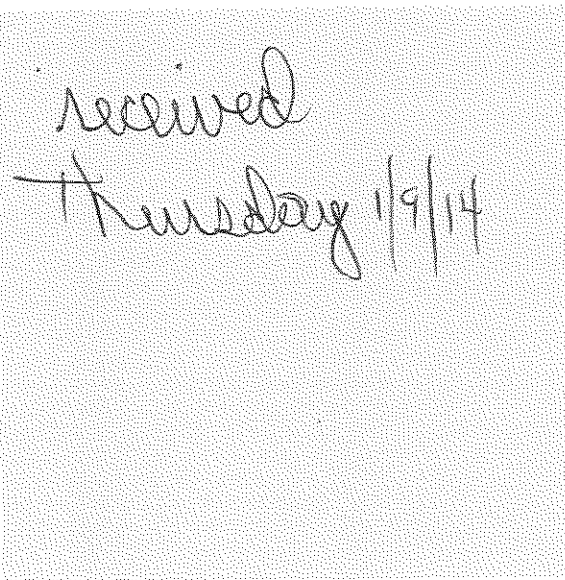 received
Thursday 1/9/14